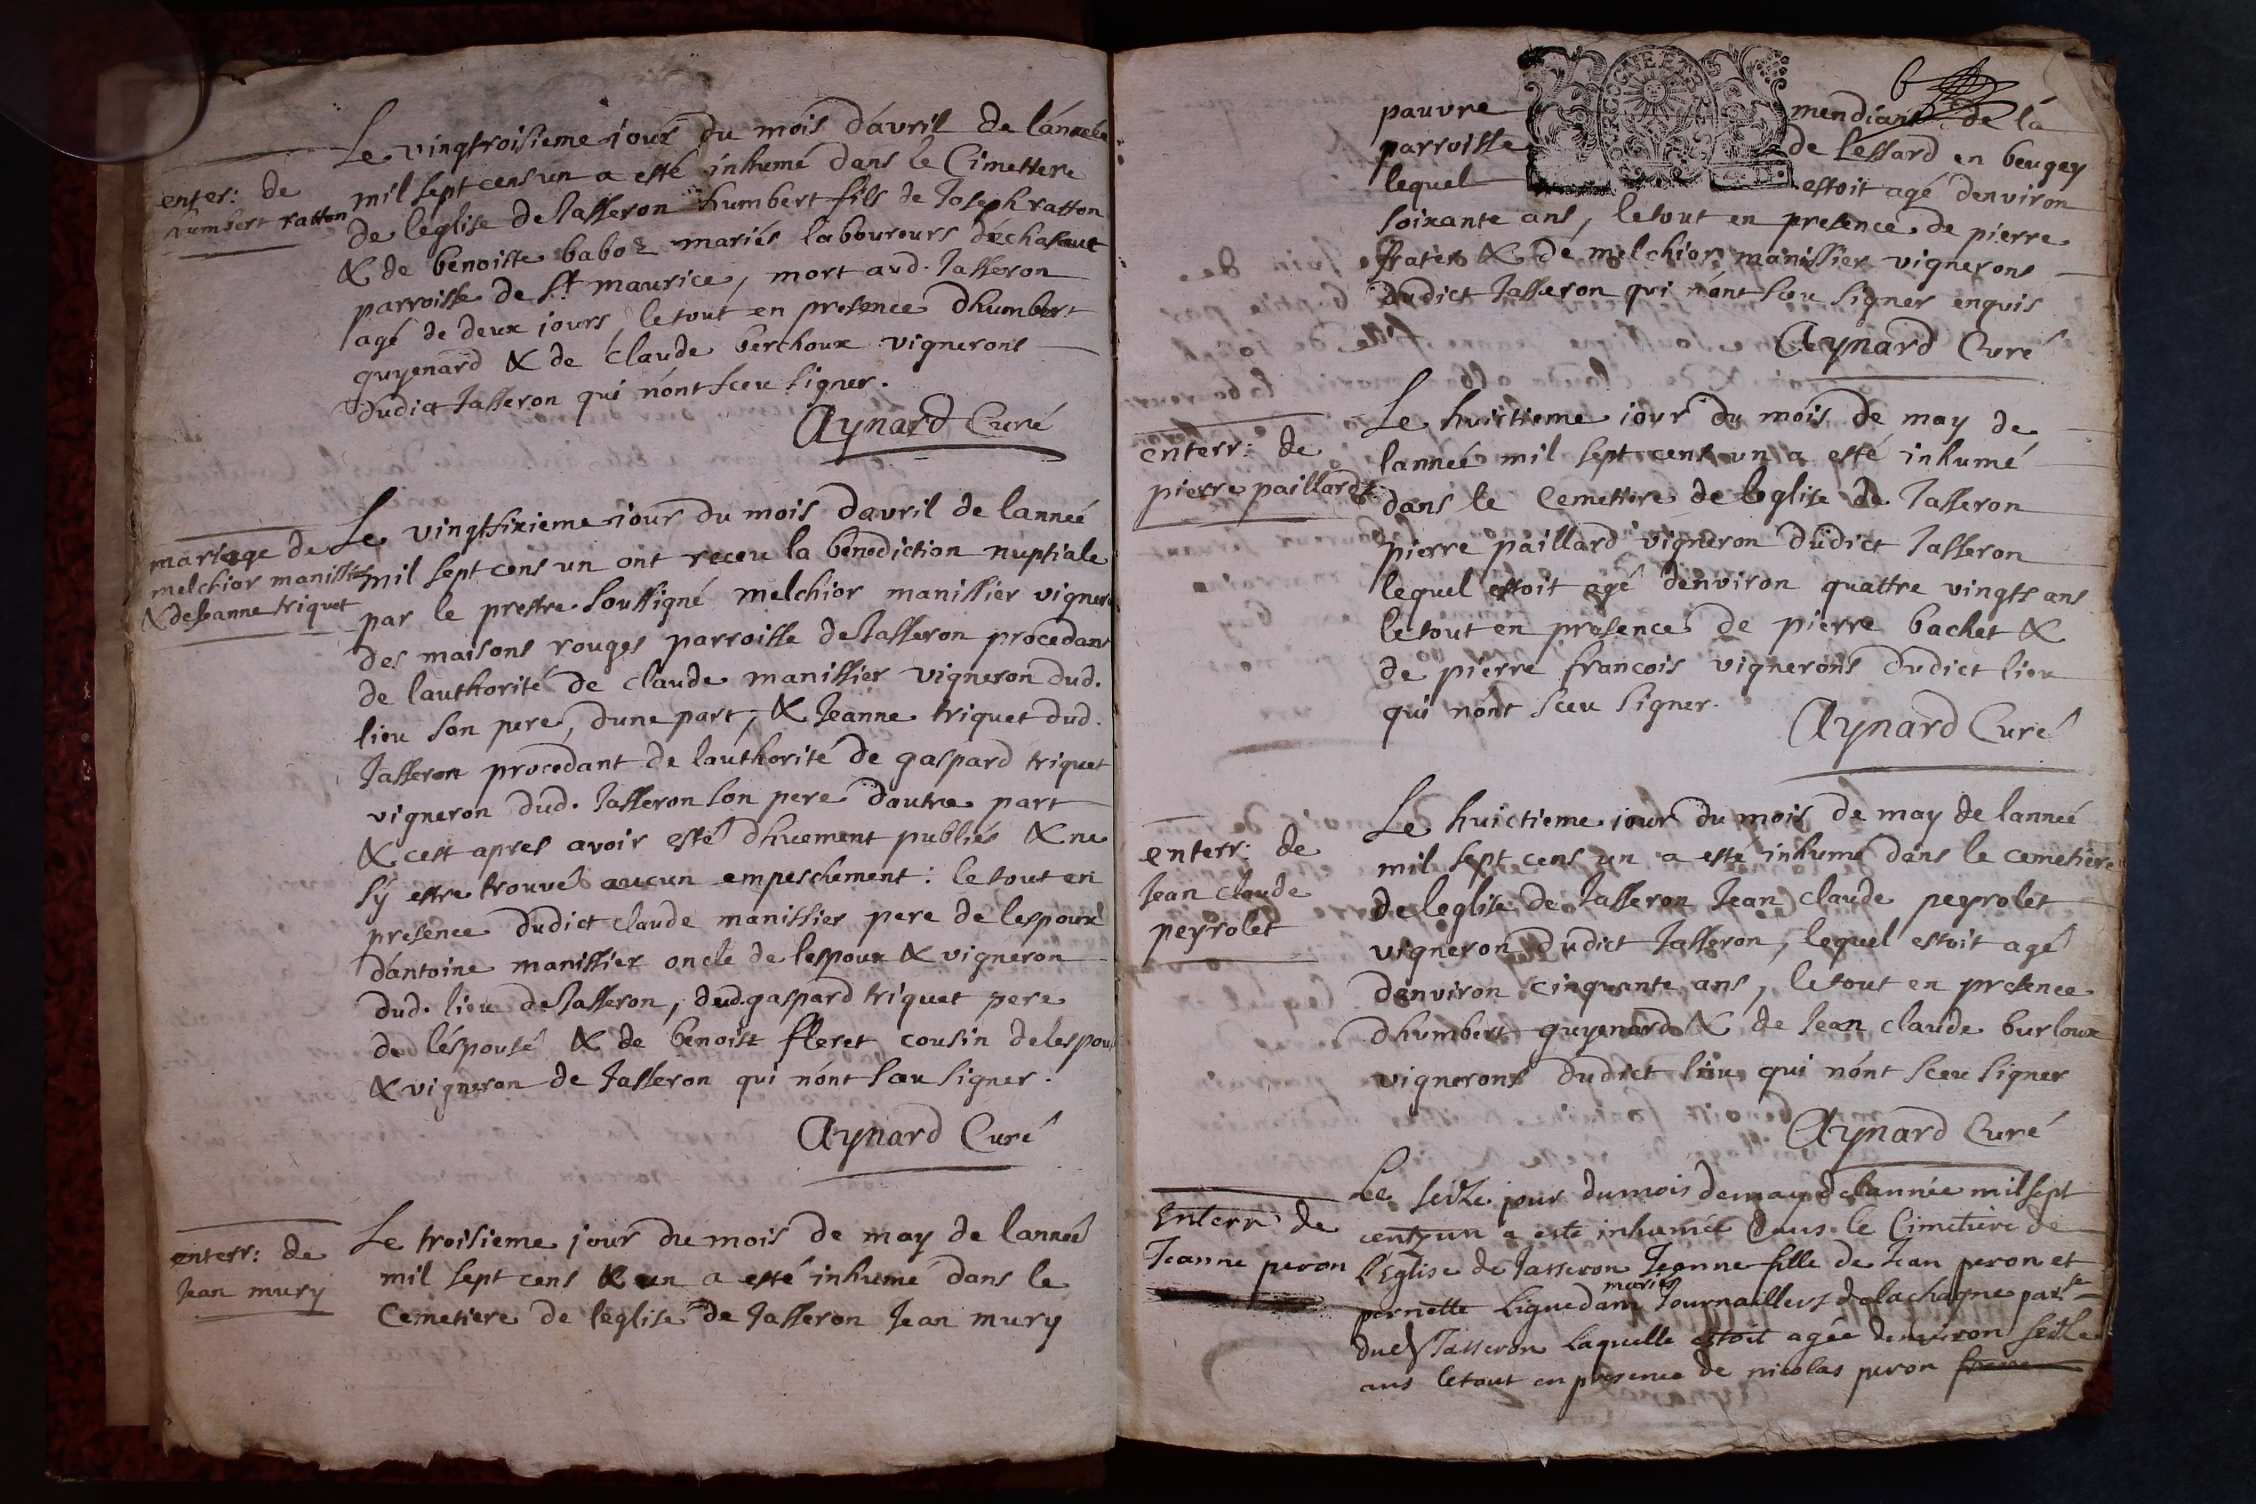 enter: de
humbert ratton
Le vingtroisieme jour du mois d'avril de l'année
mil sept cens un a esté inhumé dans le Cimettere
de leglise de Jasseron humbert fils de Joseph ratton
& de benoiste baboz mariés laboureurs déchasaut
parroisse de St maurice, mort aud. Jasseron
agé de deux jours, le tout en presence dhumbert
guyenard & de claude berthoux vignerons
dudict Jasseron qui n'ont sceu signer.
Aynard Curé
mariage de
melchior manissier
& de Jeanne triquet
Le vingtsixieme jour du mois davril de lanneé
mil sept cens un ont receu la benediction nuptiale
par le prestre soussigné melchior manissier vigneron
des maisons rouges parroisse de Jasseron procedant
de lauthorité de claude manissier vigneron dud.
lieu son pere, dune part, & Jeanne triquet dud.
Jasseron procedant de lauthorité de gaspard triquet
vigneron dud. Jasseron son pere dautre part
& cest apres avoir esté dhuement publiés & ne
sy estre trouvé aucun empeschement: le tout en
presence dudict claude manissier pere de lespoux
dantoine manissier oncle de lespoux & vigneron
dud. lieu de Jasseron, dud gaspard triquet pere
de léspousé & de benoist fleret cousin de lespoux
& vigneron de Jasseron qui n'ont sceu signer.
Aynard Curé
enterr: de
Jean mury
Le troisieme jour du mois de may de lanneé
mil sept cens & un a esté inhumé dans le
Cemetiere de leglise de Jasseron Jean mury
pauvre mendiant de la
parroisse de Lessard en beugey
lequel estoit agé denviron
soixante ans, le tout en presence de pierre
frater & de melchior manissier vignerons
dudict Jasseron qui n'ont sceu signer enquis
Aynard Curé
enterr: de
pierre paillard
Le huitieme jour du mois de may de
lanneé mil sept cens un a esté inhumé
dans le Cemettere de leglise de Jasseron
pierre paillard vigneron dudict Jasseron
lequel estoit agé denviron quattre vingts ans
le tout en presence de pierre bachet &
de pierre francois vignerons dudict lieu
qui n'ont sceu signer.
Aynard Curé
enterr: de
Jean claude
peyrolet
Le huictieme jour du mois de may de lanneé
mil sept cens un a esté inhumé dans le cemetiere
de leglise de Jasseron Jean claude peyrolet
vigneron dudict Jasseron, lequel estoit agé
denviron cinquante ans, le tout en presence
dhumbert guyenard & de Jean claude burloux
vignerons dudict lieu qui n'ont sceu signer
Aynard Curé
Enterr de
Jeanne peron
Le seize jour du mois de may de lannée mil sept
cent un a esté inhumée dans le Cimetiere de
l'Eglise de Jasseron Jeanne fille de Jean peron et
pernette Liguedam mariés Journailliers de la chagne parsse
dud Jasseron Laquelle estoit agée denviron seize
ans le tout en presence de nicolas peron frere